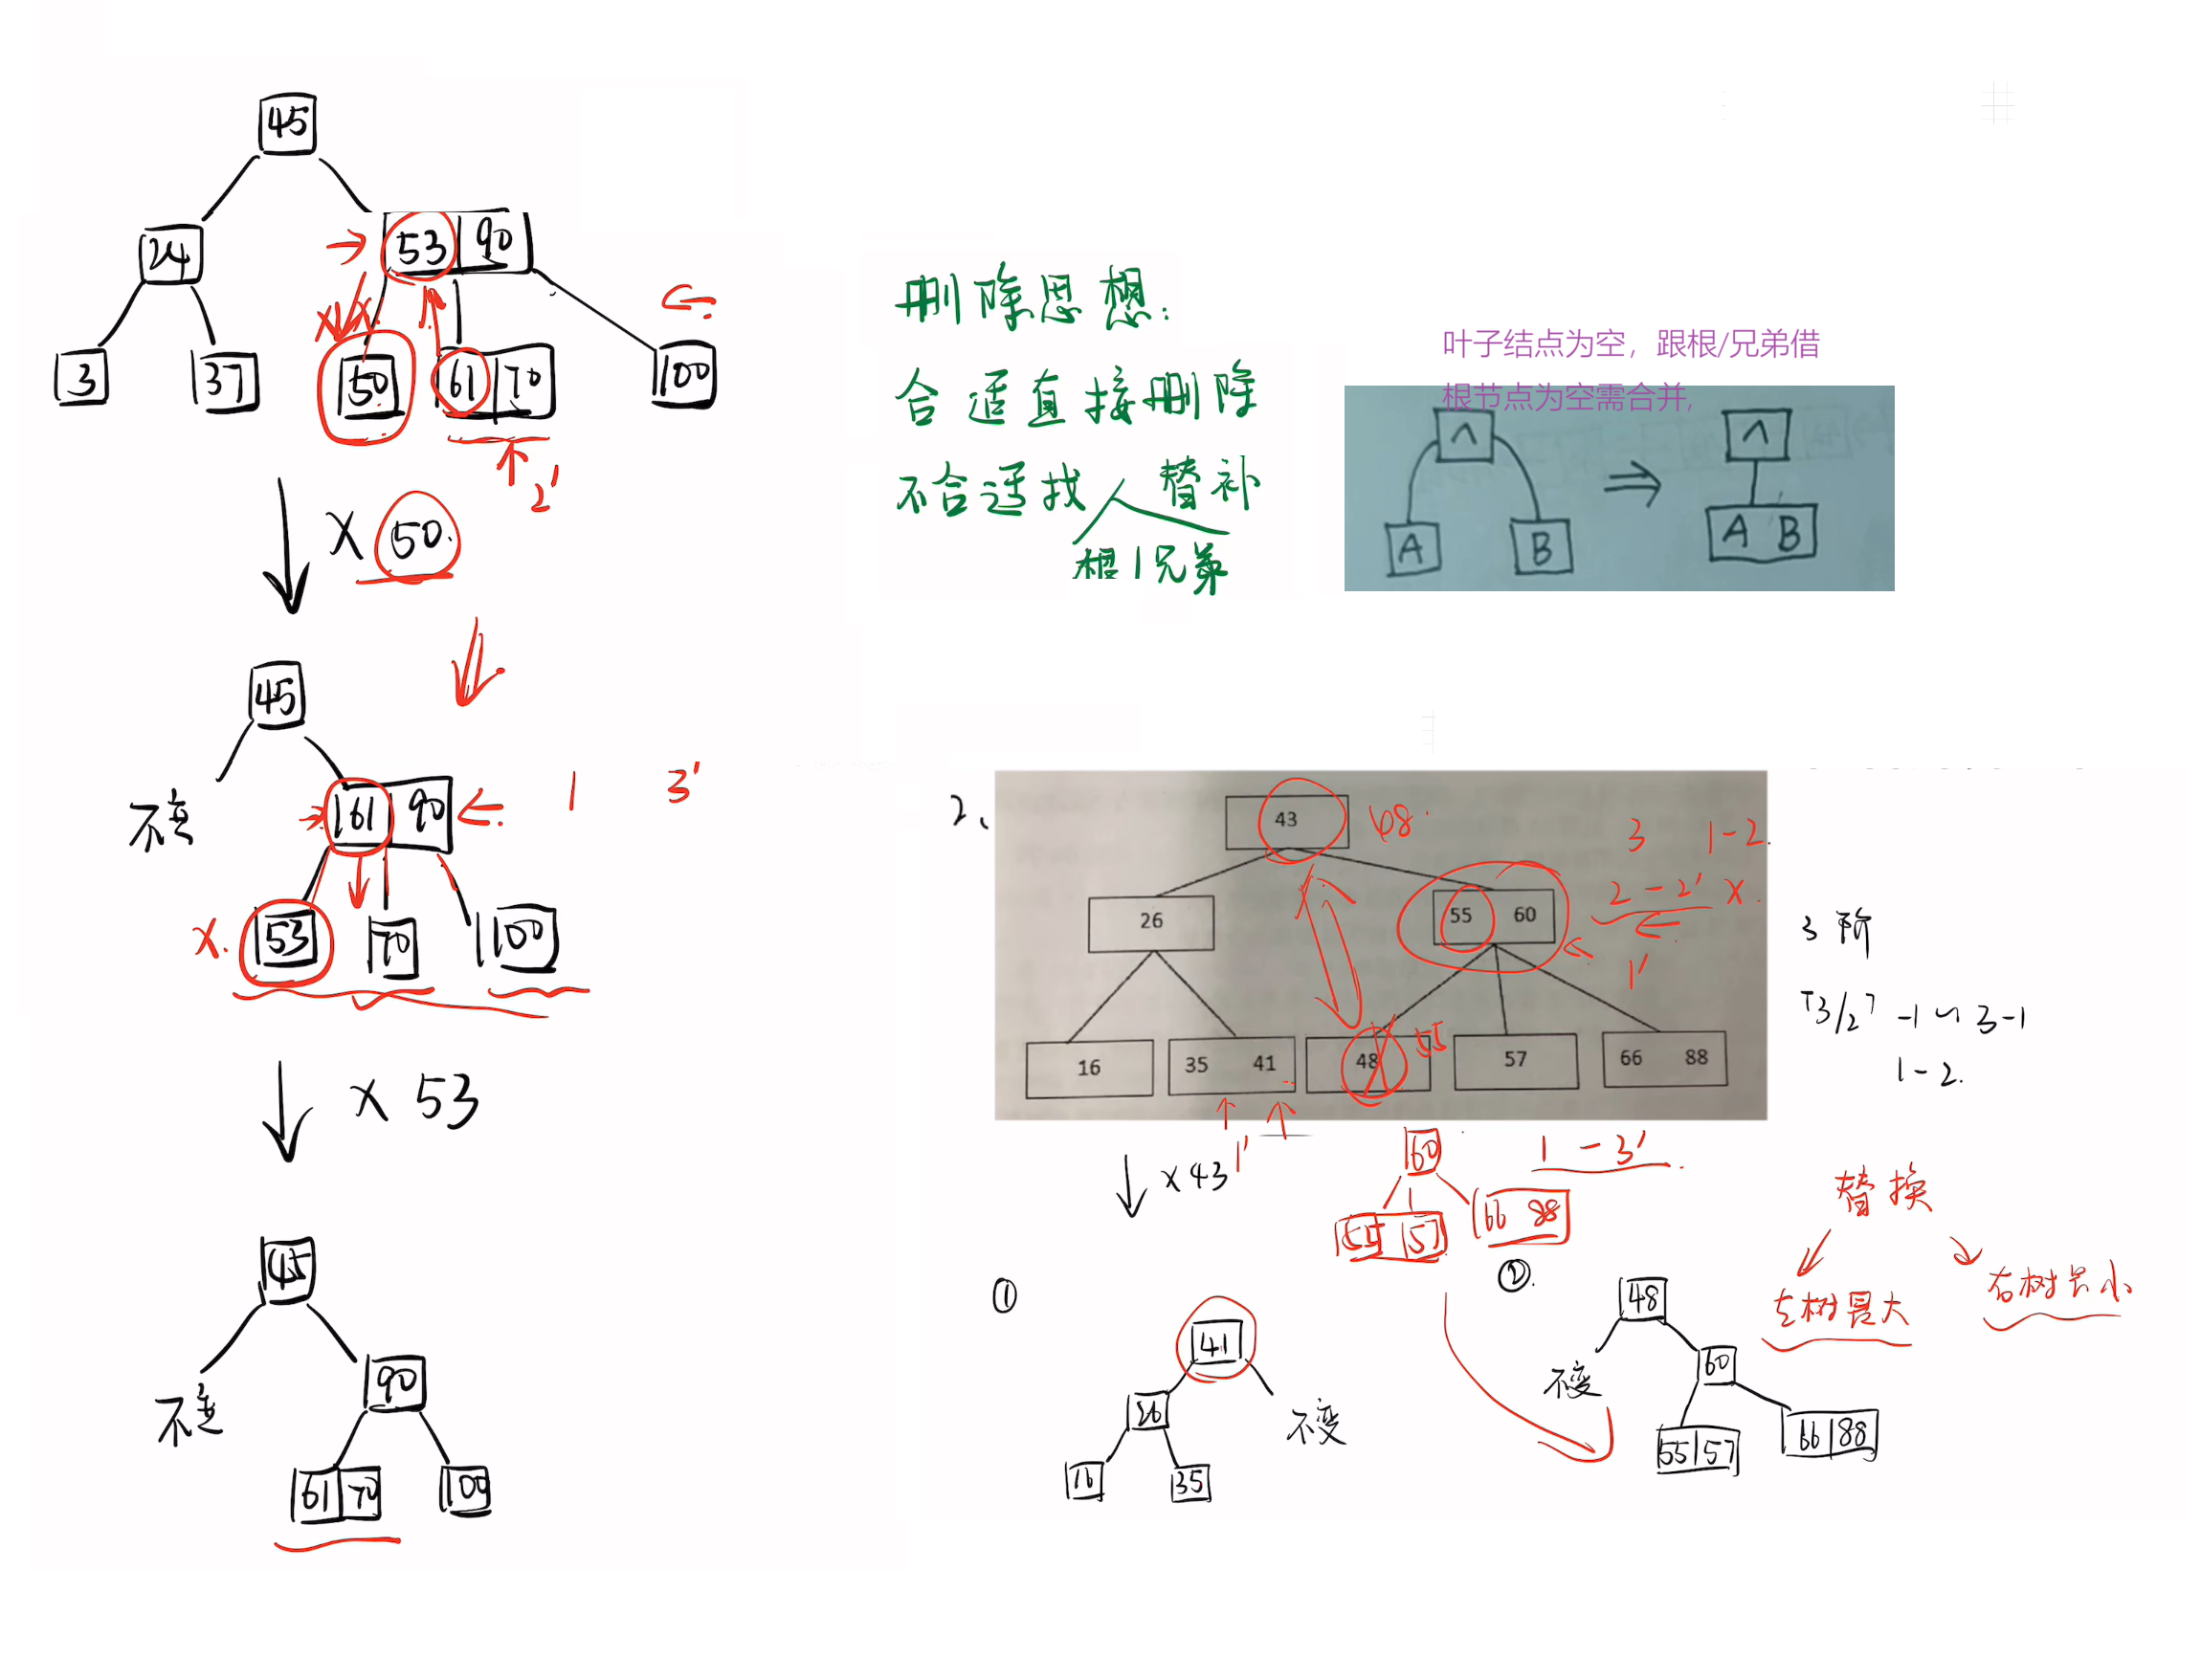 45
24
53 90
3
37
50
61 70
100
2'
× 50.
45
不变
61 90
1 3'
×.
53
70
100
× 53
45
不变
90
61 70
100
删除思想:
合适直接删除
不合适找人替补
根 兄弟
叶子结点为空，跟根/兄弟借
根节点为空需合并,
∧ ∧
A B ⇒ A B
2、
43
26
55 60
16
35 41
48
57
66 88
55
3 1-2.
2 - 2' ×.
1'
3阶
⌈3/2⌉ -1 ~ 3-1
1-2.
× 43
1'
60
1 - 3'
55 57
66 88
替换
左树最大
右树最小
①
41
26
不变
16
35
②.
48
不变
60
55 57
66 88